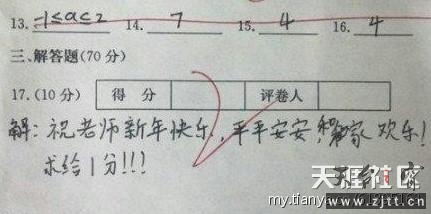 13. -1≤a≤2 14. 7 15. 4 16. 4
三、解答题(70 分)
17.(10 分) 得 分 评卷人
解：祝老师新年快乐，平平安安，家欢乐！
求给1分!!!
天涯社区
my.tianya
www.zjtt.cn